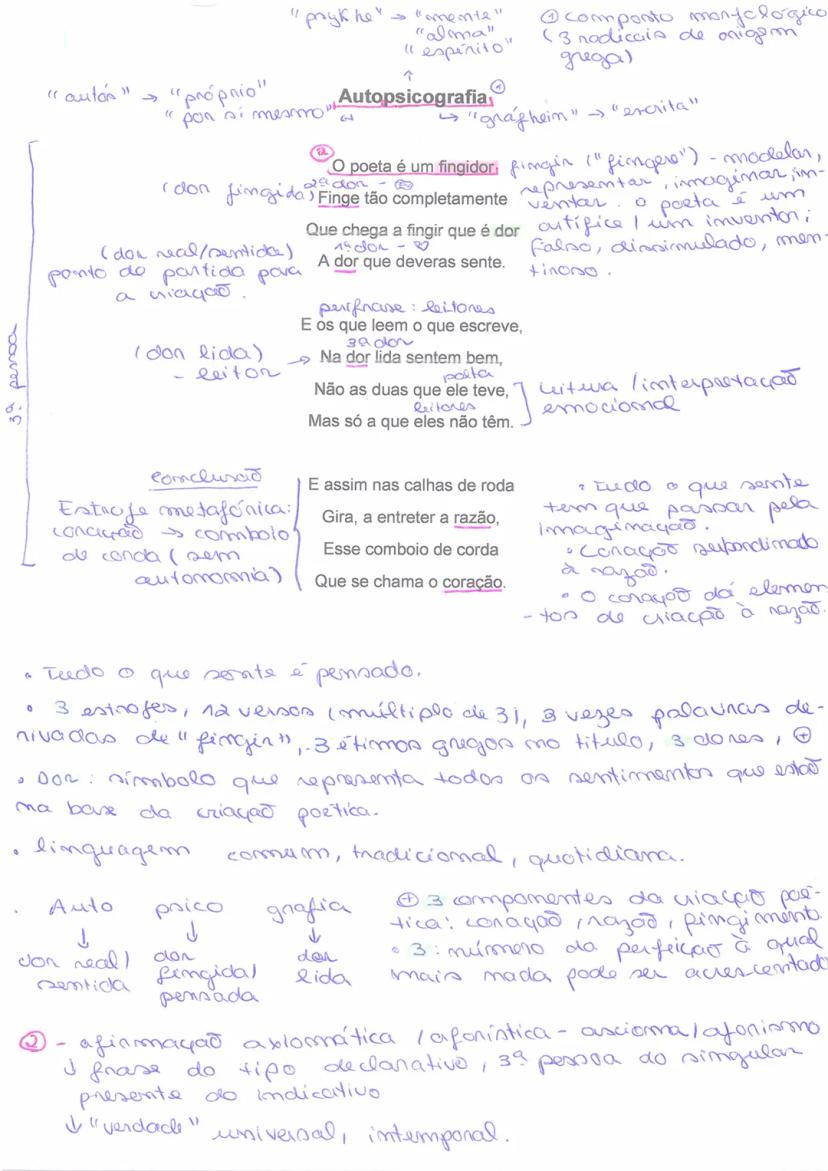 "psykhe" → "mente"
"alma"
"espírito"
① composto morfológico
(3 radicais de origem
grega)
↑
"autós" → "próprio"
"por si mesmo" ↩
Autopsicografia ①
↳ "grápheim" → "escrita"
②
O poeta é um fingidor.
fingir ("fingere") - modelar,
representar, imaginar, in-
ventar. o poeta é um
artífice / um inventor;
falso, dissimulado, men-
tiroso.
(dor fingida) 2ª dor -
Finge tão completamente
Que chega a fingir que é dor
(dor real/sentida) 1ª dor - ♡
ponto de partida para
a criação.
A dor que deveras sente.
perífrase: leitores
E os que leem o que escreve,
3ª dor
(dor lida) →
- leitor
Na dor lida sentem bem,
poeta
Não as duas que ele teve,
leitores
Mas só a que eles não têm.
leitura / interpretação
emocional
3ª pessoa
Conclusão
Estrofe metafórica:
coração → comboio
de corda (sem
autonomia)
E assim nas calhas de roda
Gira, a entreter a razão,
Esse comboio de corda
Que se chama o coração.
• Tudo o que sente
tem que passar pela
imaginação.
• Coração subordinado
à razão.
• O coração dá elemen
- tos de criação à razão.
• Tudo o que sente é pensado.
• 3 estrofes, 12 versos (múltiplo de 3), 3 vezes palavras de-
rivadas de "fingir", 3 étimos gregos no título, 3 dores, ⊕
• Dor: símbolo que representa todos os sentimentos que estão
na base da criação poética.
• linguagem comum, tradicional, quotidiana.
• Auto psico grafia
↓ ↓ ↓
dor real/ dor dor
sentida fingida/ lida
pensada
⊕ 3 componentes da criação poé-
tica: coração, razão, fingimento
• 3: número da perfeição à qual
mais nada pode ser acrescentado
② - afirmação axiomática / aforística - axioma / aforismo
↓ frase do tipo declarativo, 3ª pessoa do singular
presente do indicativo
↓ "verdade" universal, intemporal.